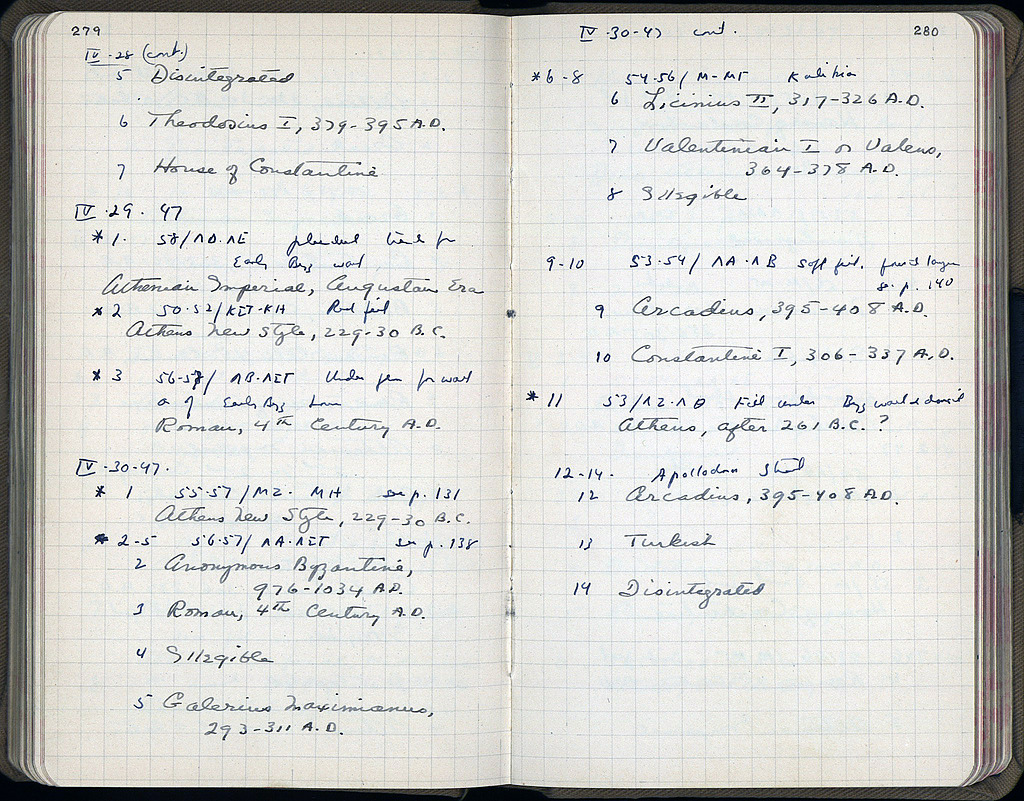 279
IV-28 (cont.)
5 Disintegrated
6 Theodosius I, 379-395 A.D.
7 House of Constantine
IV.29. 47
*1. 58/ΛΘ.ΛΕ trench for
Early Byz wall
Athenian Imperial, Augustan Era
*2 50-52/ΚΣΤ-ΚΗ Red fill
Athens New Style, 229-30 B.C.
*3 56-57/ ΛΒ.ΛΣΤ Under for wall
a of Early Byz
Roman, 4th Century A.D.
IV-30-47.
* 1 55-57/ΜΖ. ΜΗ see p. 131
Athens New Style, 229-30 B.C.
* 2-5 56-57/ ΛΑ.ΛΣΤ see p. 138
2 Anonymous Byzantine,
976-1034 A.D.
3 Roman, 4th Century A.D.
4 Illegible
5 Galerius Maximianus,
293-311 A.D.
IV-30-47 cont.
280
*6-8 54-56/ Μ-ΜΓ
6 Licinius II, 317-326 A.D.
7 Valentinian I or Valens,
364-378 A.D.
8 Illegible
9-10 53-54/ ΛΑ-ΛΒ soft fill.
8. p. 140
9 Arcadius, 395-408 A.D.
10 Constantine I, 306-337 A.D.
* 11 53/ΛΖ-ΛΘ Fill under Byz wall
Athens, after 261 B.C. ?
12-14. Apollodorus Street
12 Arcadius, 395-408 A.D.
13 Turkish
14 Disintegrated